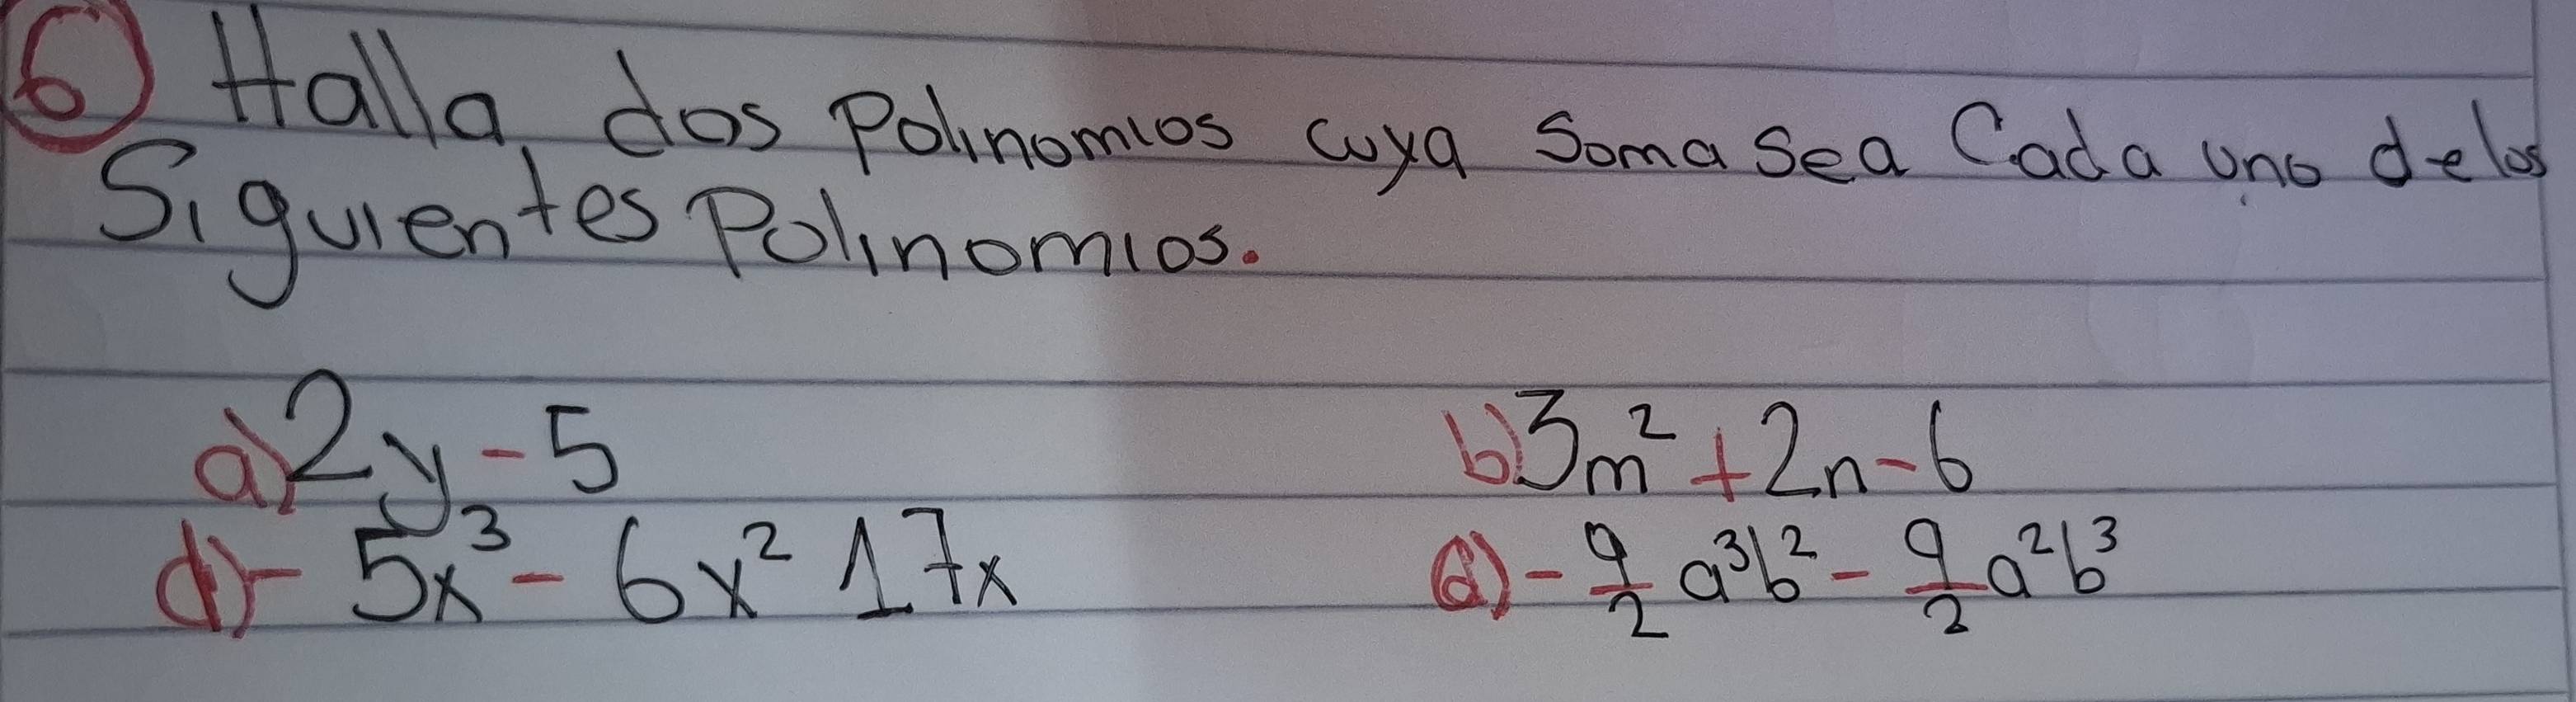 6 Halla dos Polinomios cuya Soma Sea Cada uno delos
Siguientes Polinomios.
a) 2y - 5
b) 3m² + 2n - 6
d) - 5x³ - 6x² 17x
e) - 9/2 a³b² - 9/2 a²b³